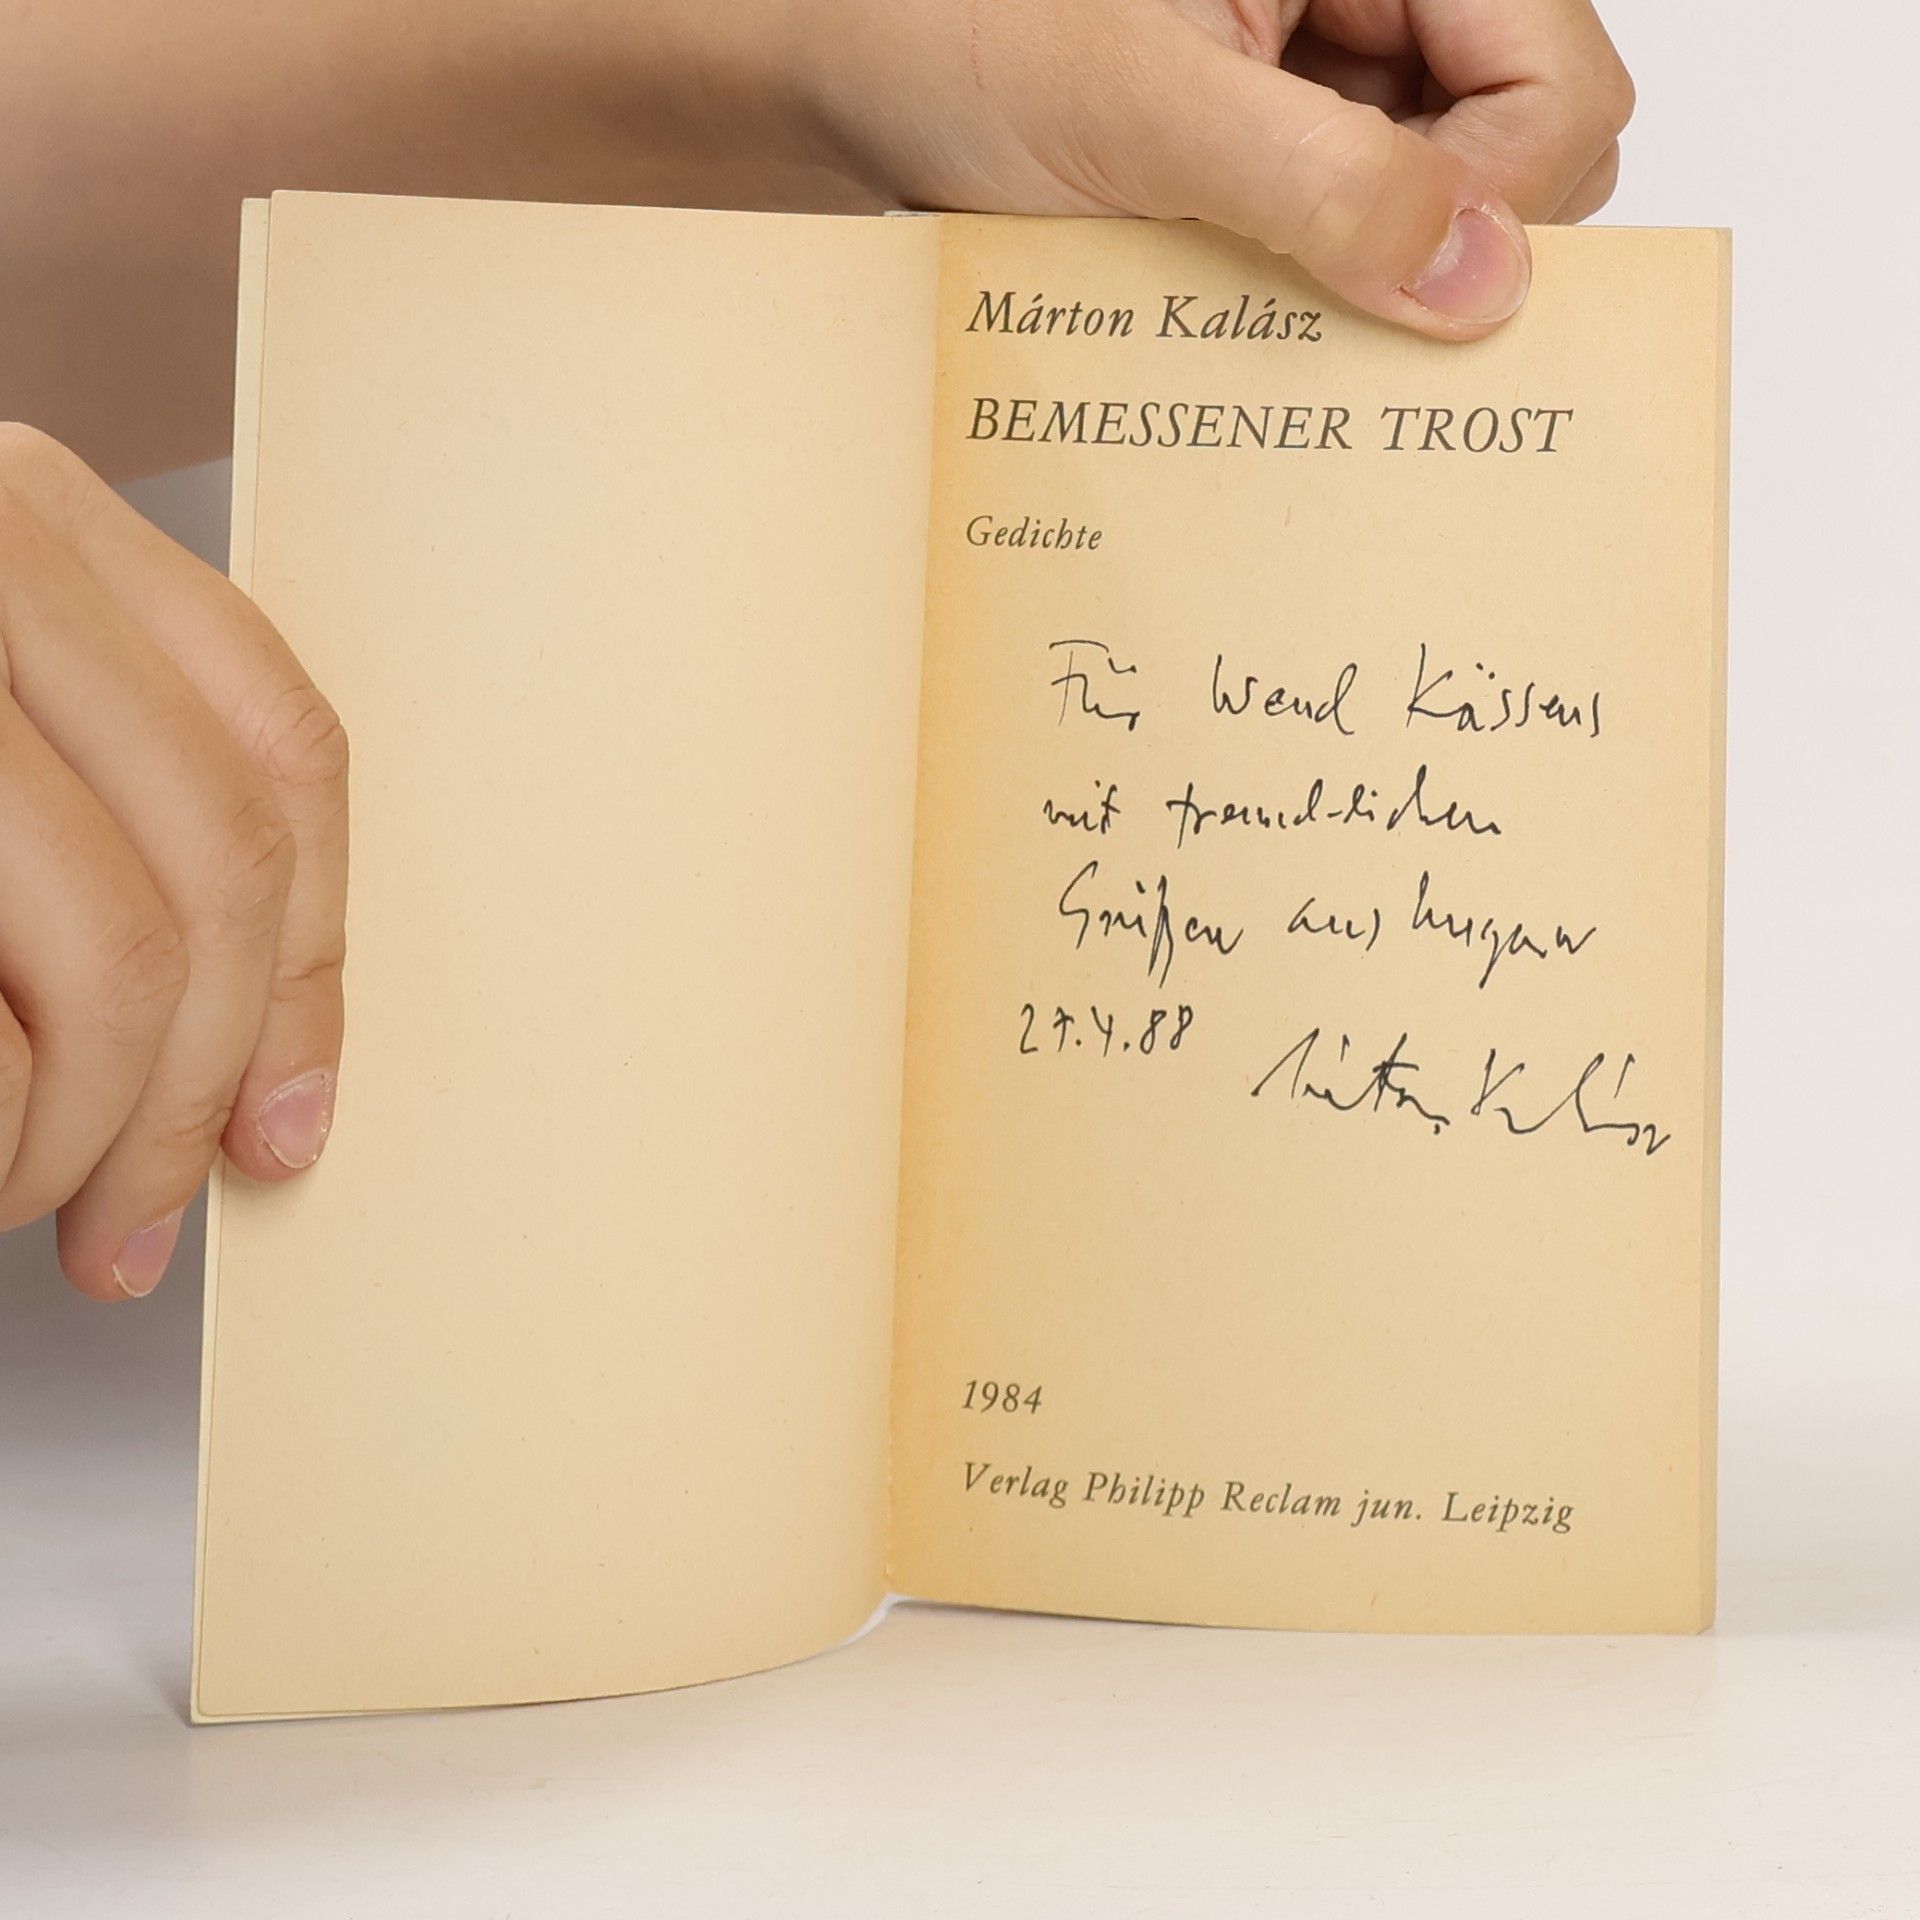 Márton Kalász
BEMESSENER TROST
Gedichte
Für Wend Kässens
mit freundlichen
Grüßen aus Ungarn
27.4.88 Márton Kalász
1984
Verlag Philipp Reclam jun. Leipzig